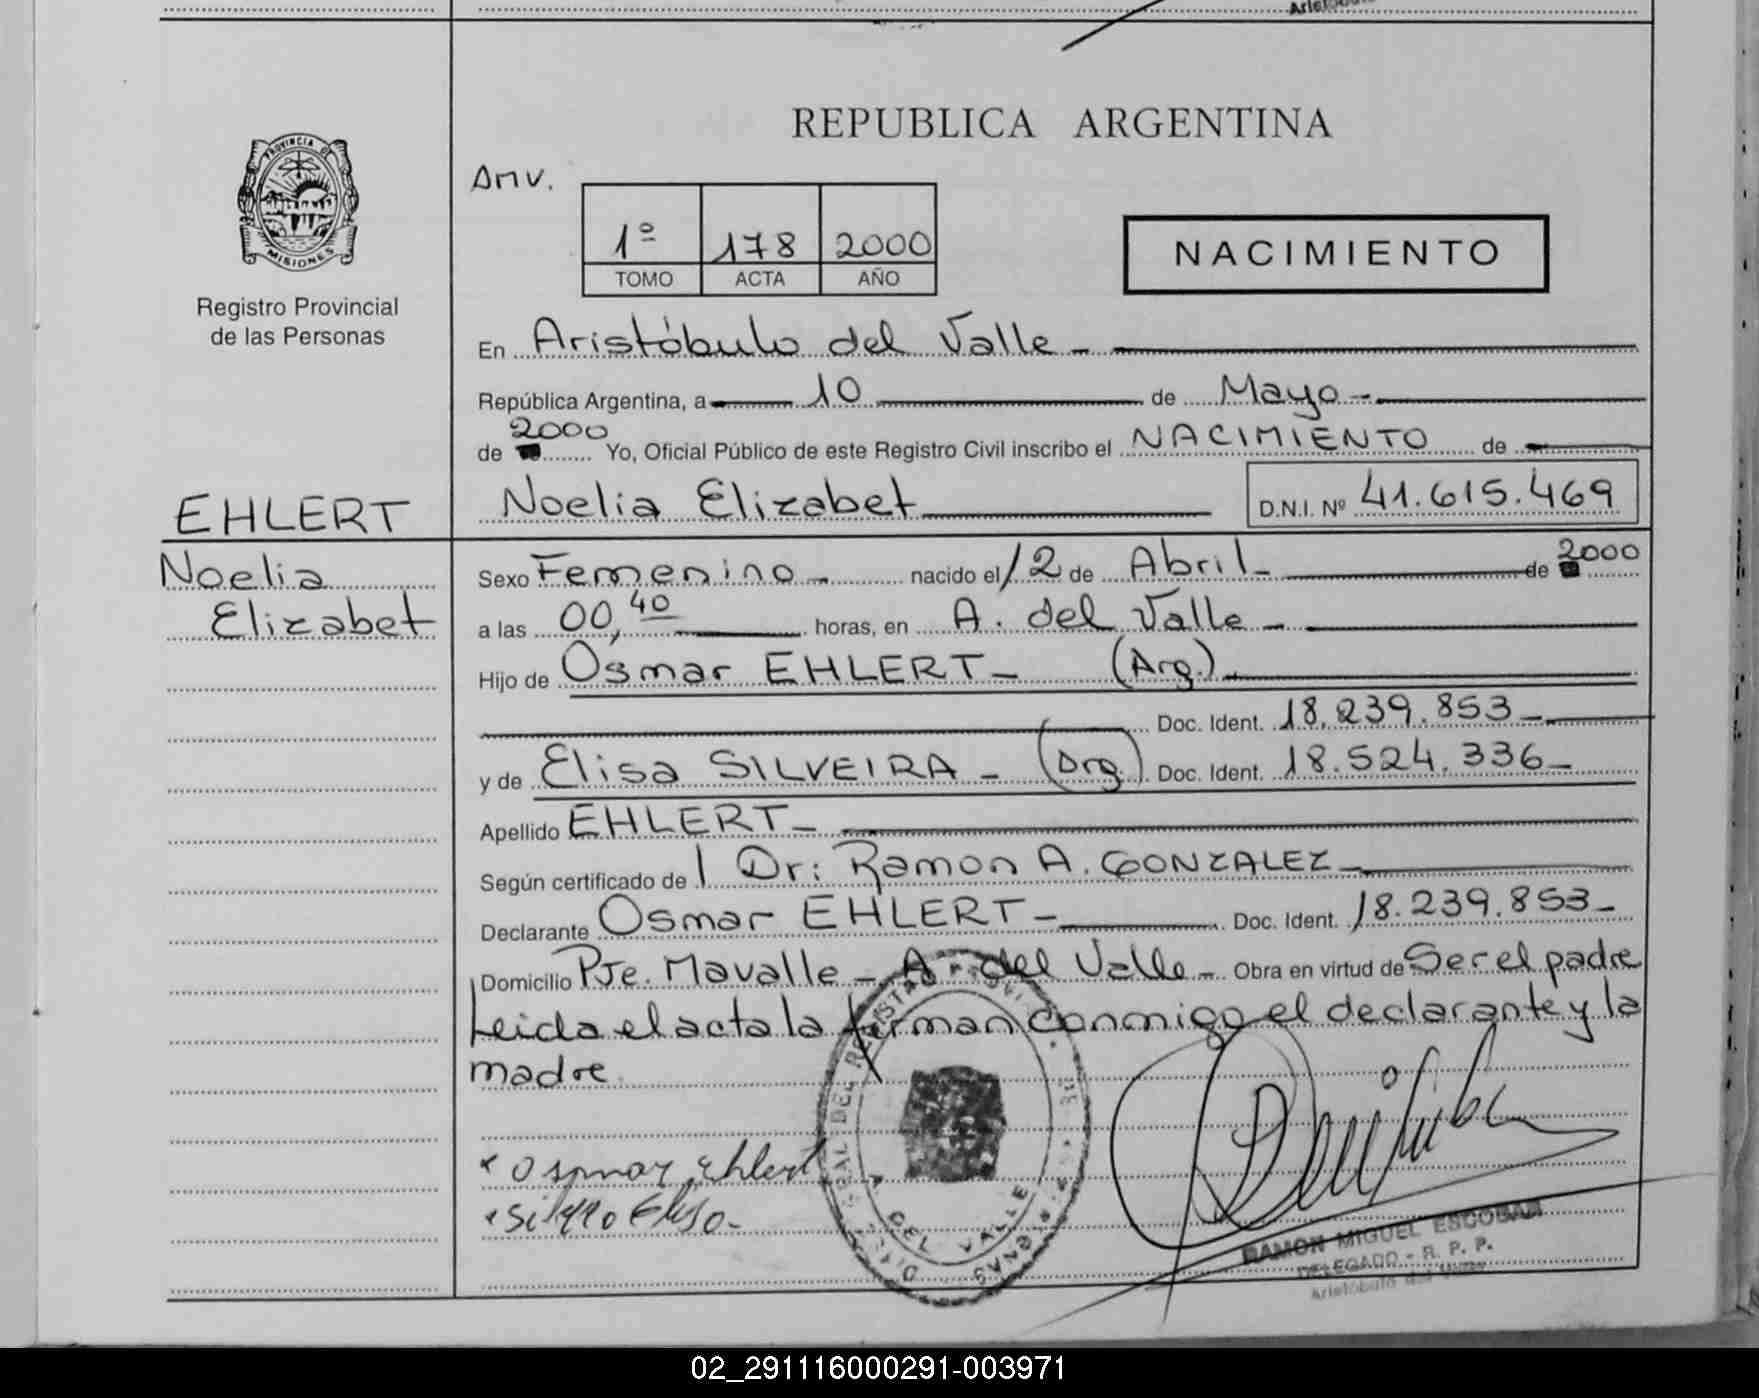 REPUBLICA ARGENTINA
PROVINCIA DE
MISIONES
Registro Provincial
de las Personas
Amv.
1º 178 2000
TOMO ACTA AÑO
NACIMIENTO
En Aristóbulo del Valle -
República Argentina, a 10 de Mayo -
de 2000 Yo, Oficial Público de este Registro Civil inscribo el NACIMIENTO de
EHLERT
Noelia Elizabet D.N.I. Nº 41.615.469
Noelia
Elizabet
Sexo Femenino - nacido el 12 de Abril - de 2000
a las 00,40 horas, en A. del Valle -
Hijo de Osmar EHLERT - (Arg.)
Doc. Ident. 18.239.853 -
y de Elisa SILVEIRA - (Arg.) Doc. Ident. 18.524.336 -
Apellido EHLERT -
Según certificado de l Dr: Ramon A. GONZALEZ -
Declarante Osmar EHLERT - Doc. Ident. 18.239.853 -
Domicilio Pje. Mavalle - A. del Valle - Obra en virtud de Ser el padre
Leida el acta la firman conmigo el declarante y la
madre
x Osmar Ehlert
DEL VALLE
RAMON MIGUEL ESCOBAR
DELEGADO - R. P. P.
Aristóbulo del Valle
02_291116000291-003971